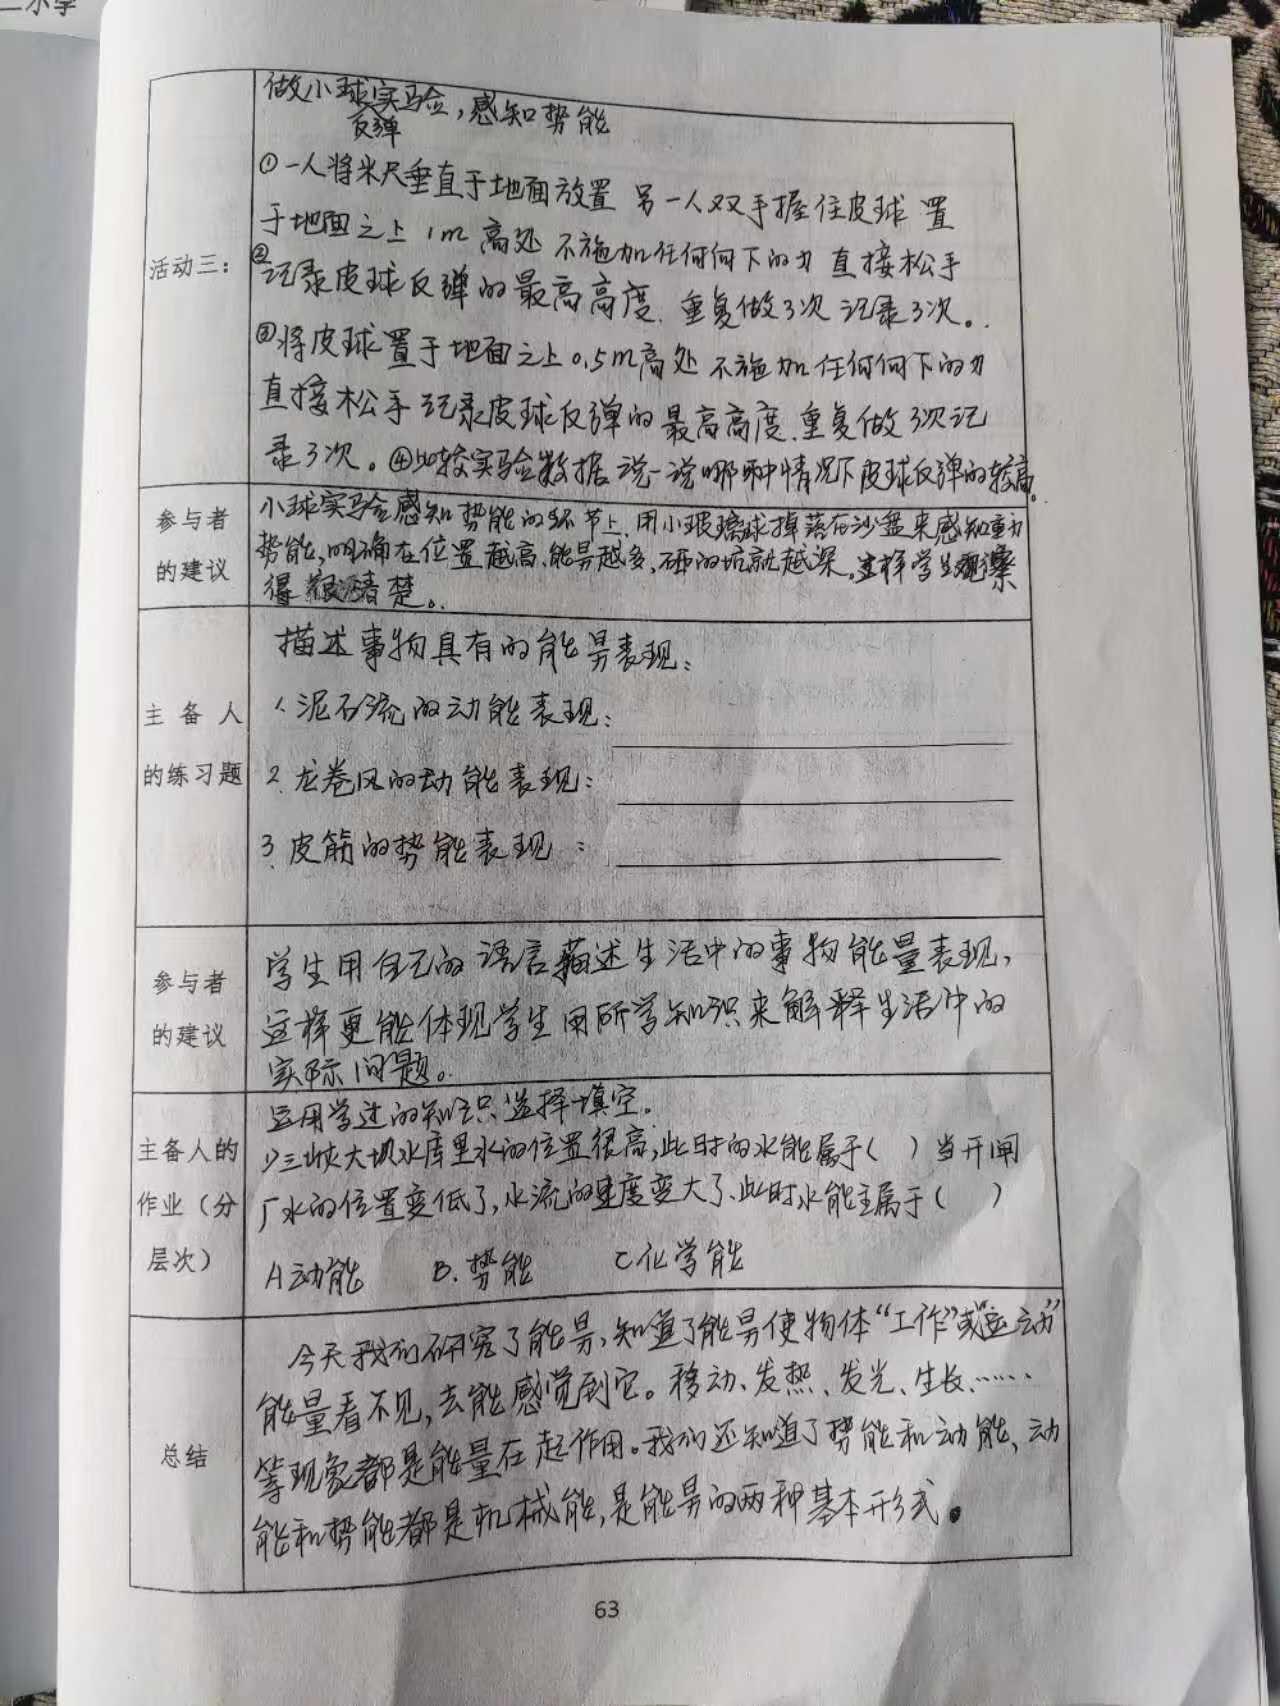 二小学
做小球反弹实验,感知势能
活动三:
①一人将米尺垂直于地面放置 另一人双手握住皮球 置
于地面之上 1m 高处 不施加任何向下的力 直接松手
②记录皮球反弹的最高高度. 重复做3次 记录3次。
③将皮球置于地面之上0.5m高处 不施加任何向下的力
直接松手 记录皮球反弹的最高高度.重复做3次记
录3次。④比较实验数据 说一说哪种情况下皮球反弹的较高。
参与者
的建议
小球实验感知势能的环节上,用小玻璃球掉落在沙盘来感知重力
势能,明确在位置越高、能量越多,砸的坑就越深。这样学生观察
得很清楚。
主备人
的练习题
描述事物具有的能量表现:
1.泥石流的动能表现:
2.龙卷风的动能表现:
3.皮筋的势能表现:
参与者
的建议
学生用自己的语言描述生活中的事物能量表现,
这样更能体现学生用所学知识来解释生活中的
实际问题。
主备人的
作业(分
层次)
运用学过的知识选择填空。
1)三峡大坝水库里水的位置很高,此时的水能属于( )当开闸
厂水的位置变低了,水流的速度变大了、此时水能主属于( )
A动能 B.势能 C化学能
总结
今天我们研究了能量,知道了能量使物体“工作”或“运动”
能量看不见,去能感觉到它。移动、发热、发光、生长……
等现象都是能量在起作用。我们还知道了势能和动能、动
能和势能都是机械能,是能量的两种基本形式。
63